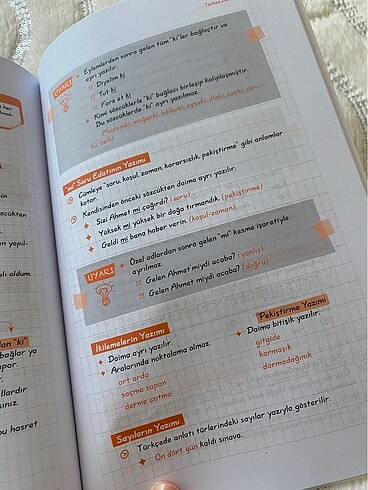 Türkçe
UYARI
Eylemlerden sonra gelen tüm "ki"ler bağlaçtır ve
ayrı yazılır.
Diyelim ki
Tut ki
Farz et ki
Kimi sözcüklerle "ki" bağlacı birleşip kalıplaşmıştır.
Bu sözcüklerde "ki" ayrı yazılmaz.
Mademki, meğerki, hâlbuki, oysaki, illaki, sanki, çün-
kü, belki
"mi" Soru Edatının Yazımı
Cümleye "soru, koşul, zaman, kararsızlık, pekiştirme" gibi anlamlar
katar.
Kendisinden önceki sözcükten daima ayrı yazılır.
Sizi Ahmet mi çağırdı? (soru)
Yüksek mi yüksek bir dağa tırmandık. (pekiştirme)
Geldi mi bana haber verin. (koşul-zaman)
UYARI
Özel adlardan sonra gelen "mi" kesme işaretiyle
ayrılmaz.
Gelen Ahmet'miydi acaba? (yanlış)
Gelen Ahmet miydi acaba? (doğru)
İkilemelerin Yazımı
Daima ayrı yazılır.
Aralarında noktalama olmaz
art arda
saçma sapan
derme çatma
Pekiştirme Yazımı
Daima bitişik yazılır.
gitgide
karmaşık
darmadağınık
Sayıların Yazımı
Türkçede anlatı türlerindeki sayılar yazıyla gösterilir.
On dört gün kaldı sınava.
her
sözcükten
yapıl-
oldum.
"ki"
bağlar ya
par.
llardır
sınız
bu hasret